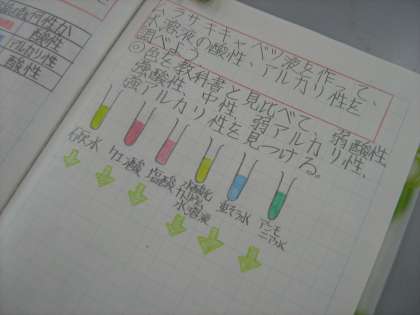 弱酸性か
酸性
アルカリ性
酸性
ムラサキキャベツ液を作って、
水溶液の酸性、アルカリ性を
調べよう
◎色を教科書と見比べて、弱酸性、
強酸性、中性、弱アルカリ性、
強アルカリ性を見つける。
石灰水
クエン酸
塩酸
水酸化
ナトリウム
水溶液
重そう水
アンモ
ニア水